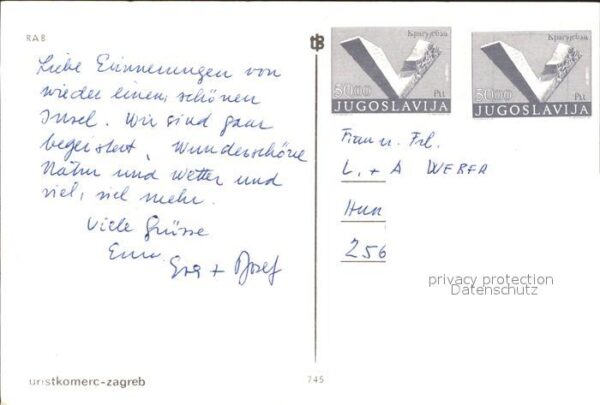 RAB
Liebe Erinnerungen von
wieder einem schönen
Insel. Wir sind ganz
begeistert. Wunderschöne
Natur und Wetter und
viel, viel mehr.
Viele Grüsse
Eva + Josef
turistkomerc-zagreb
745
tB
Крагујевац
50.00
Ptt
JUGOSLAVIJA
Крагујевац
50.00
Ptt
JUGOSLAVIJA
Frau u. Frl.
L. + A WEBER
256
privacy protection
Datenschutz